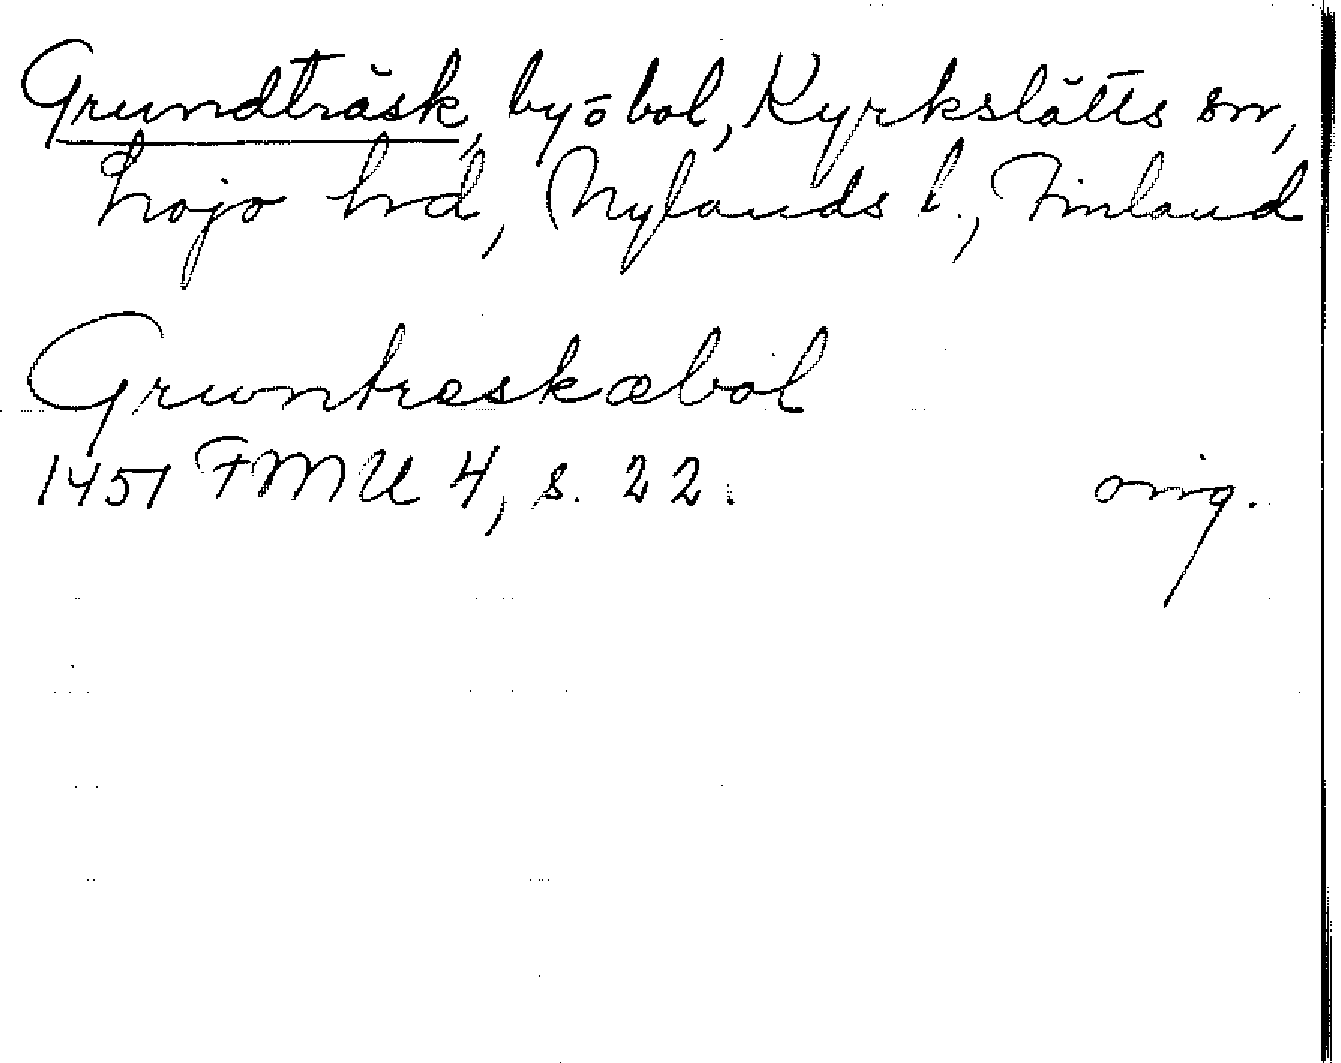 Grundträsk, by o bol, Kyrkslätts sn,
Lojo hd, Nylands l., Finland
Gruntræskæbol
1451 FMU 4, s. 22. orig.